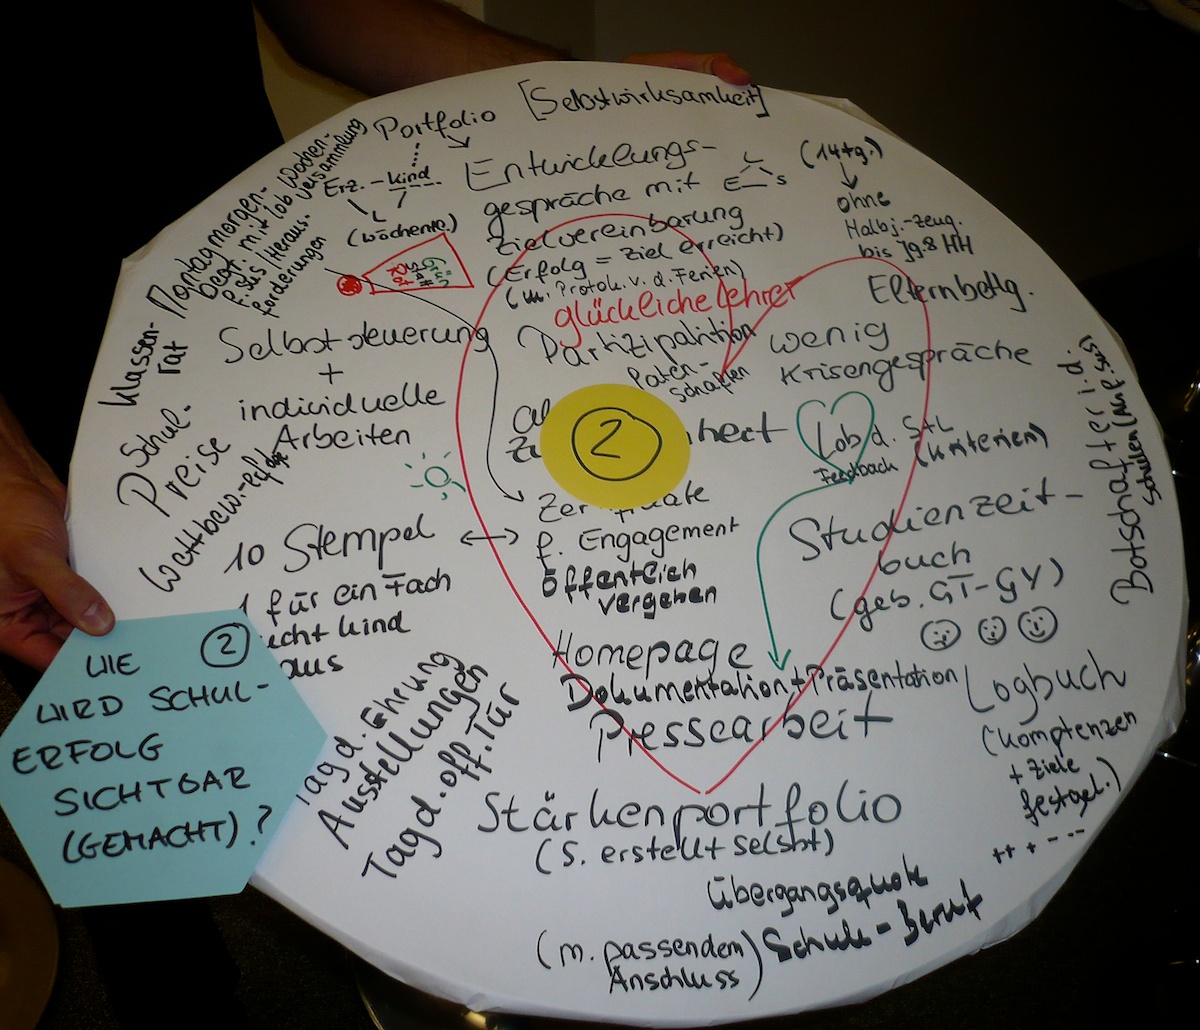 Portfolio [Selbstwirksamkeit]
Erz. - Kind
L
(wöchentl.)
Entwicklungs-
gespräche mit
L
E S
Zielvereinbarung
(Erfolg = Ziel erreicht)
(m. Protok. v. d. Ferien)
glückliche Lehrer
Partizipation
Paten-
schaften
(14tg.)
ohne
Halbj.-Zeug.
bis Jg 8 HH
Elternbetlg.
wenig
Krisengespräche
Lob d. StL
Feedback (Kriterien)
Botschafter i. d.
Schulen
Montagmorgen-
Wochen-
versammlung
beg. mit Lob
Heraus-
forderungen
Klassen-
rat
Selbststeuerung
+
individuelle
Arbeiten
Schul-
Preise
Wettbew.-erfolge
2
heit
10 Stempel
für ein Fach
Kind
aus
f. Engagement
öffentlich
vergeben
Studienzeit-
buch
(geb. GT-GY)
Homepage
Dokumentation + Präsentation
Pressearbeit
Logbuch
(Komptenzen
+ Ziele
festgel.)
++ + - --
Tag d. Ehrung
Ausstellungen
Tag d. off. Tür
Stärkenportfolio
(S. erstellt selsbt)
Übergangsquote
Schule - Beruf
(m. passendem
Anschluss)
2
WIE
WIRD SCHUL-
ERFOLG
SICHTBAR
(GEMACHT)?